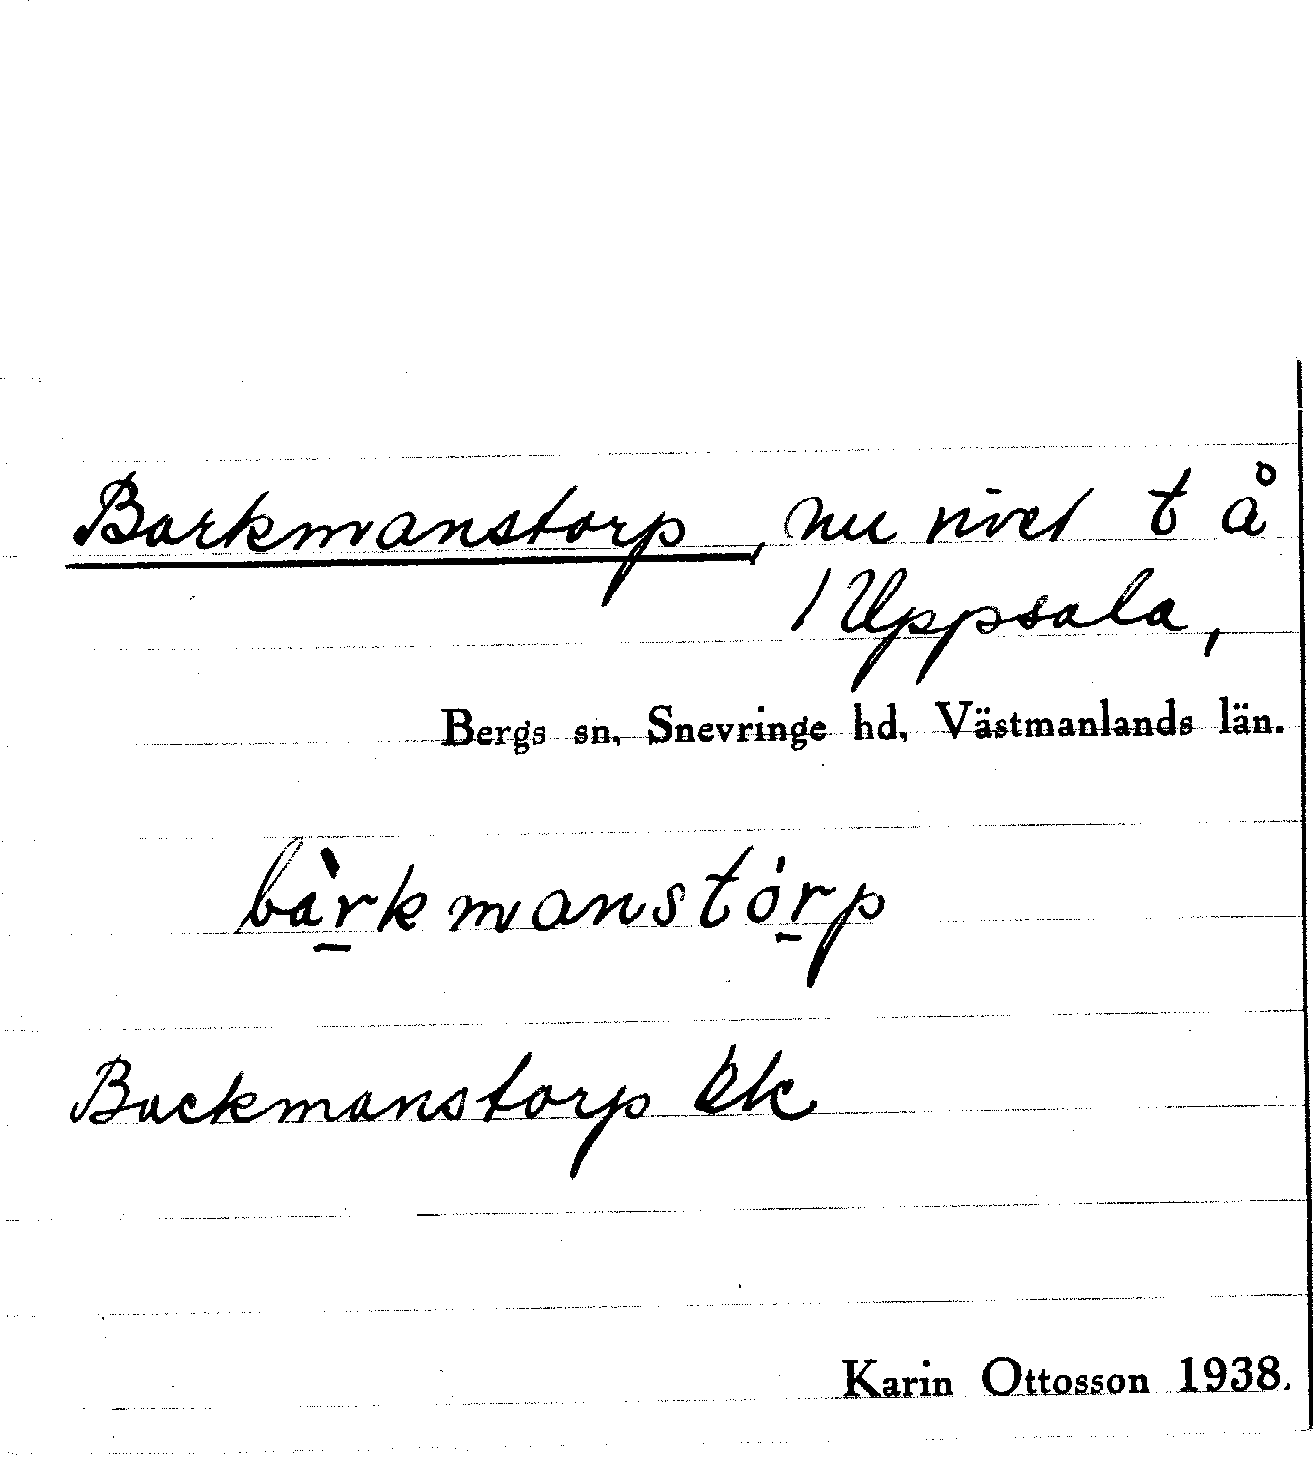 Barkmanstorp, nu rivet t å
/ Uppsala,
Bergs sn, Snevringe hd, Västmanlands län.
bàrkmanstórp
Backmanstorp Ek
Karin Ottosson 1938.